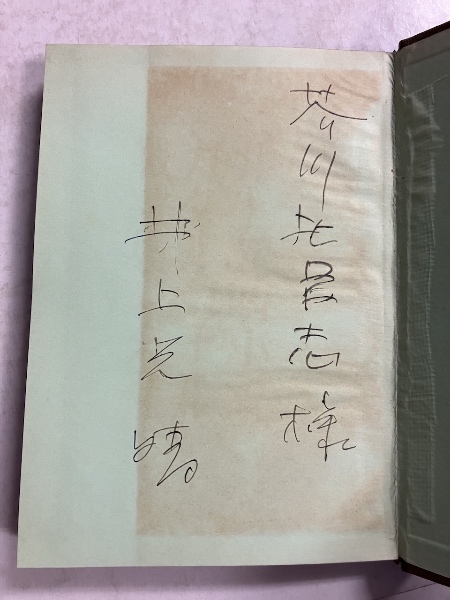 芥川比呂志様
井上光晴